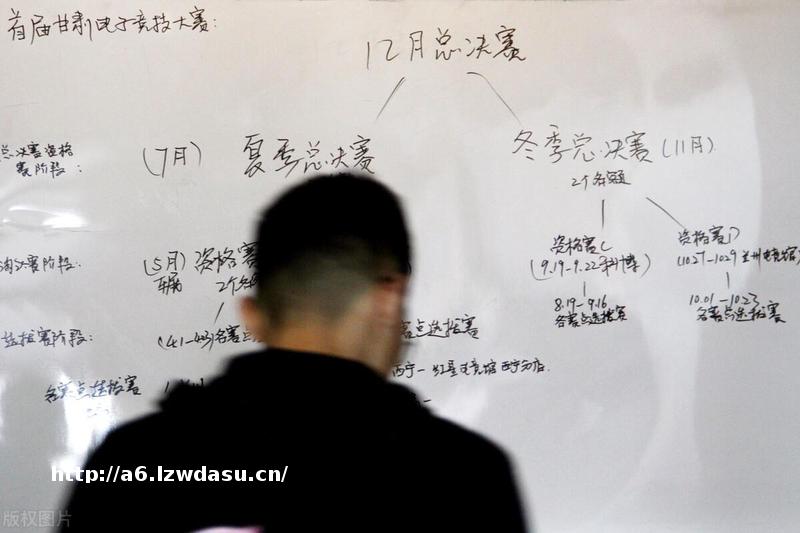 首届甘肃电子竞技大赛:
12月总决赛
总决赛资格
赛阶段:
(7月) 夏季总决赛
冬季总决赛(11月)
2个名额
(5月) 资格赛
2个名
资格赛C
(9.19-9.22
资格赛D
(10.27-10.29 兰州电竞馆)
选拔赛阶段:
各赛点选拔赛
8.19-9.16
各赛点选拔赛
10.01-10.23
各赛点选拔赛
西宁一红星电竞馆 西宁分店.
http://a6.lzwdasu.cn/
版权图片